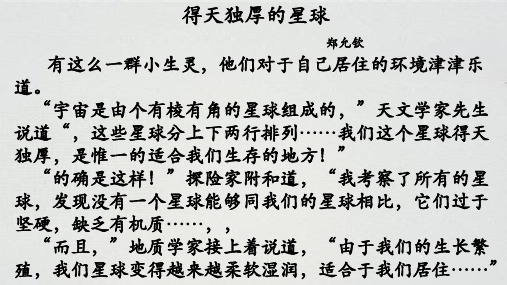 得天独厚的星球
郑允钦
有这么一群小生灵，他们对于自己居住的环境津津乐
道。
“宇宙是由个有棱有角的星球组成的，”天文学家先生
说道“，这些星球分上下两行排列……我们这个星球得天
独厚，是惟一的适合我们生存的地方！”
“的确是这样！”探险家附和道，“我考察了所有的星
球，发现没有一个星球能够同我们的星球相比，它们过于
坚硬，缺乏有机质……，，
“而且，”地质学家接上着说道，“由于我们的生长繁
殖，我们星球变得越来越柔软湿润，适合于我们居住……”